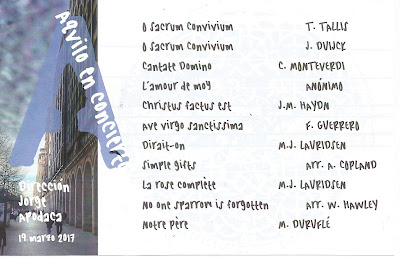 Aqvilo en concierto
Dirección
Jorge
Apodaca
19 marzo 2017
O sacrum Convivium T. TALLIS
O sacrum Convivium J. DUIJCK
Cantate Domino C. MONTEVERDI
L'amour de moy ANÓNIMO
Christus factus est J.M. HAYDN
Ave virgo sanctissima F. GUERRERO
Dirait-on M.J. LAURIDSEN
Simple gifts ARR. A. COPLAND
La rose complète M.J. LAURIDSEN
No one sparrow is forgotten ARR. W. HAWLEY
Notre Père M. DURUFLÉ